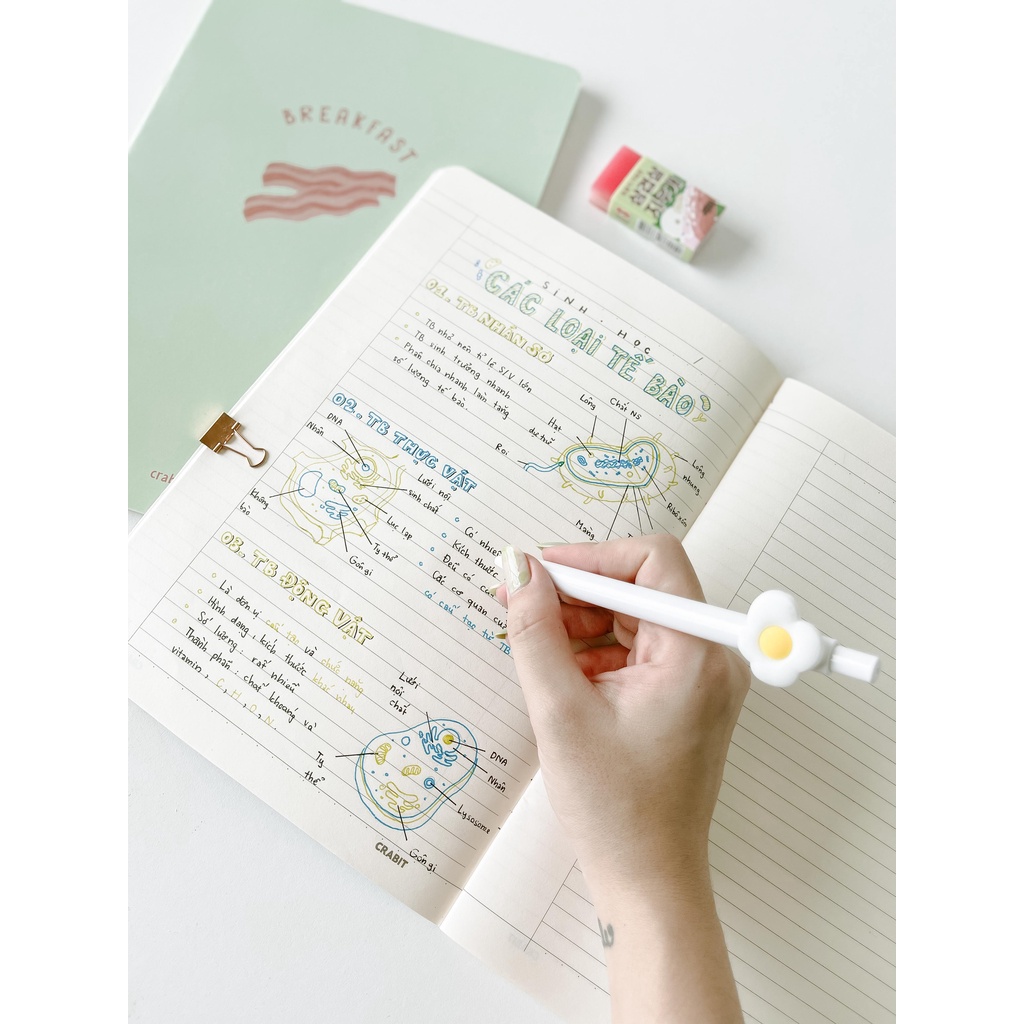 BREAKFAST
SINH HỌC
CÁC LOẠI TẾ BÀO
01. TB NHÂN SƠ
TB nhỏ nên tỉ lệ S/V lớn
TB sinh trưởng nhanh
Phân chia nhanh làm tăng
số lượng tế bào.
Lông
Chất NS
Hạt
dự trữ
Roi
Lông
nhung
Ribôxôm
Màng
02. TB THỰC VẬT
DNA
Nhân
Lưới nội
sinh chất
Lục lạp
Ty thể
Gôngi
Không
bào
Kích thước
Đều có
Các cơ quan
có cấu tạo từ TB
03. TB ĐỘNG VẬT
Là đơn vị cấu tạo và chức năng
Hình dạng, kích thước khác nhau
Số lượng: rất nhiều
Thành phần: chất khoáng và
vitamin, C, H, O, N.
Lưới
nội
chất
DNA
Nhân
Lysosome
Gôngi
Ty
thể
CRABIT